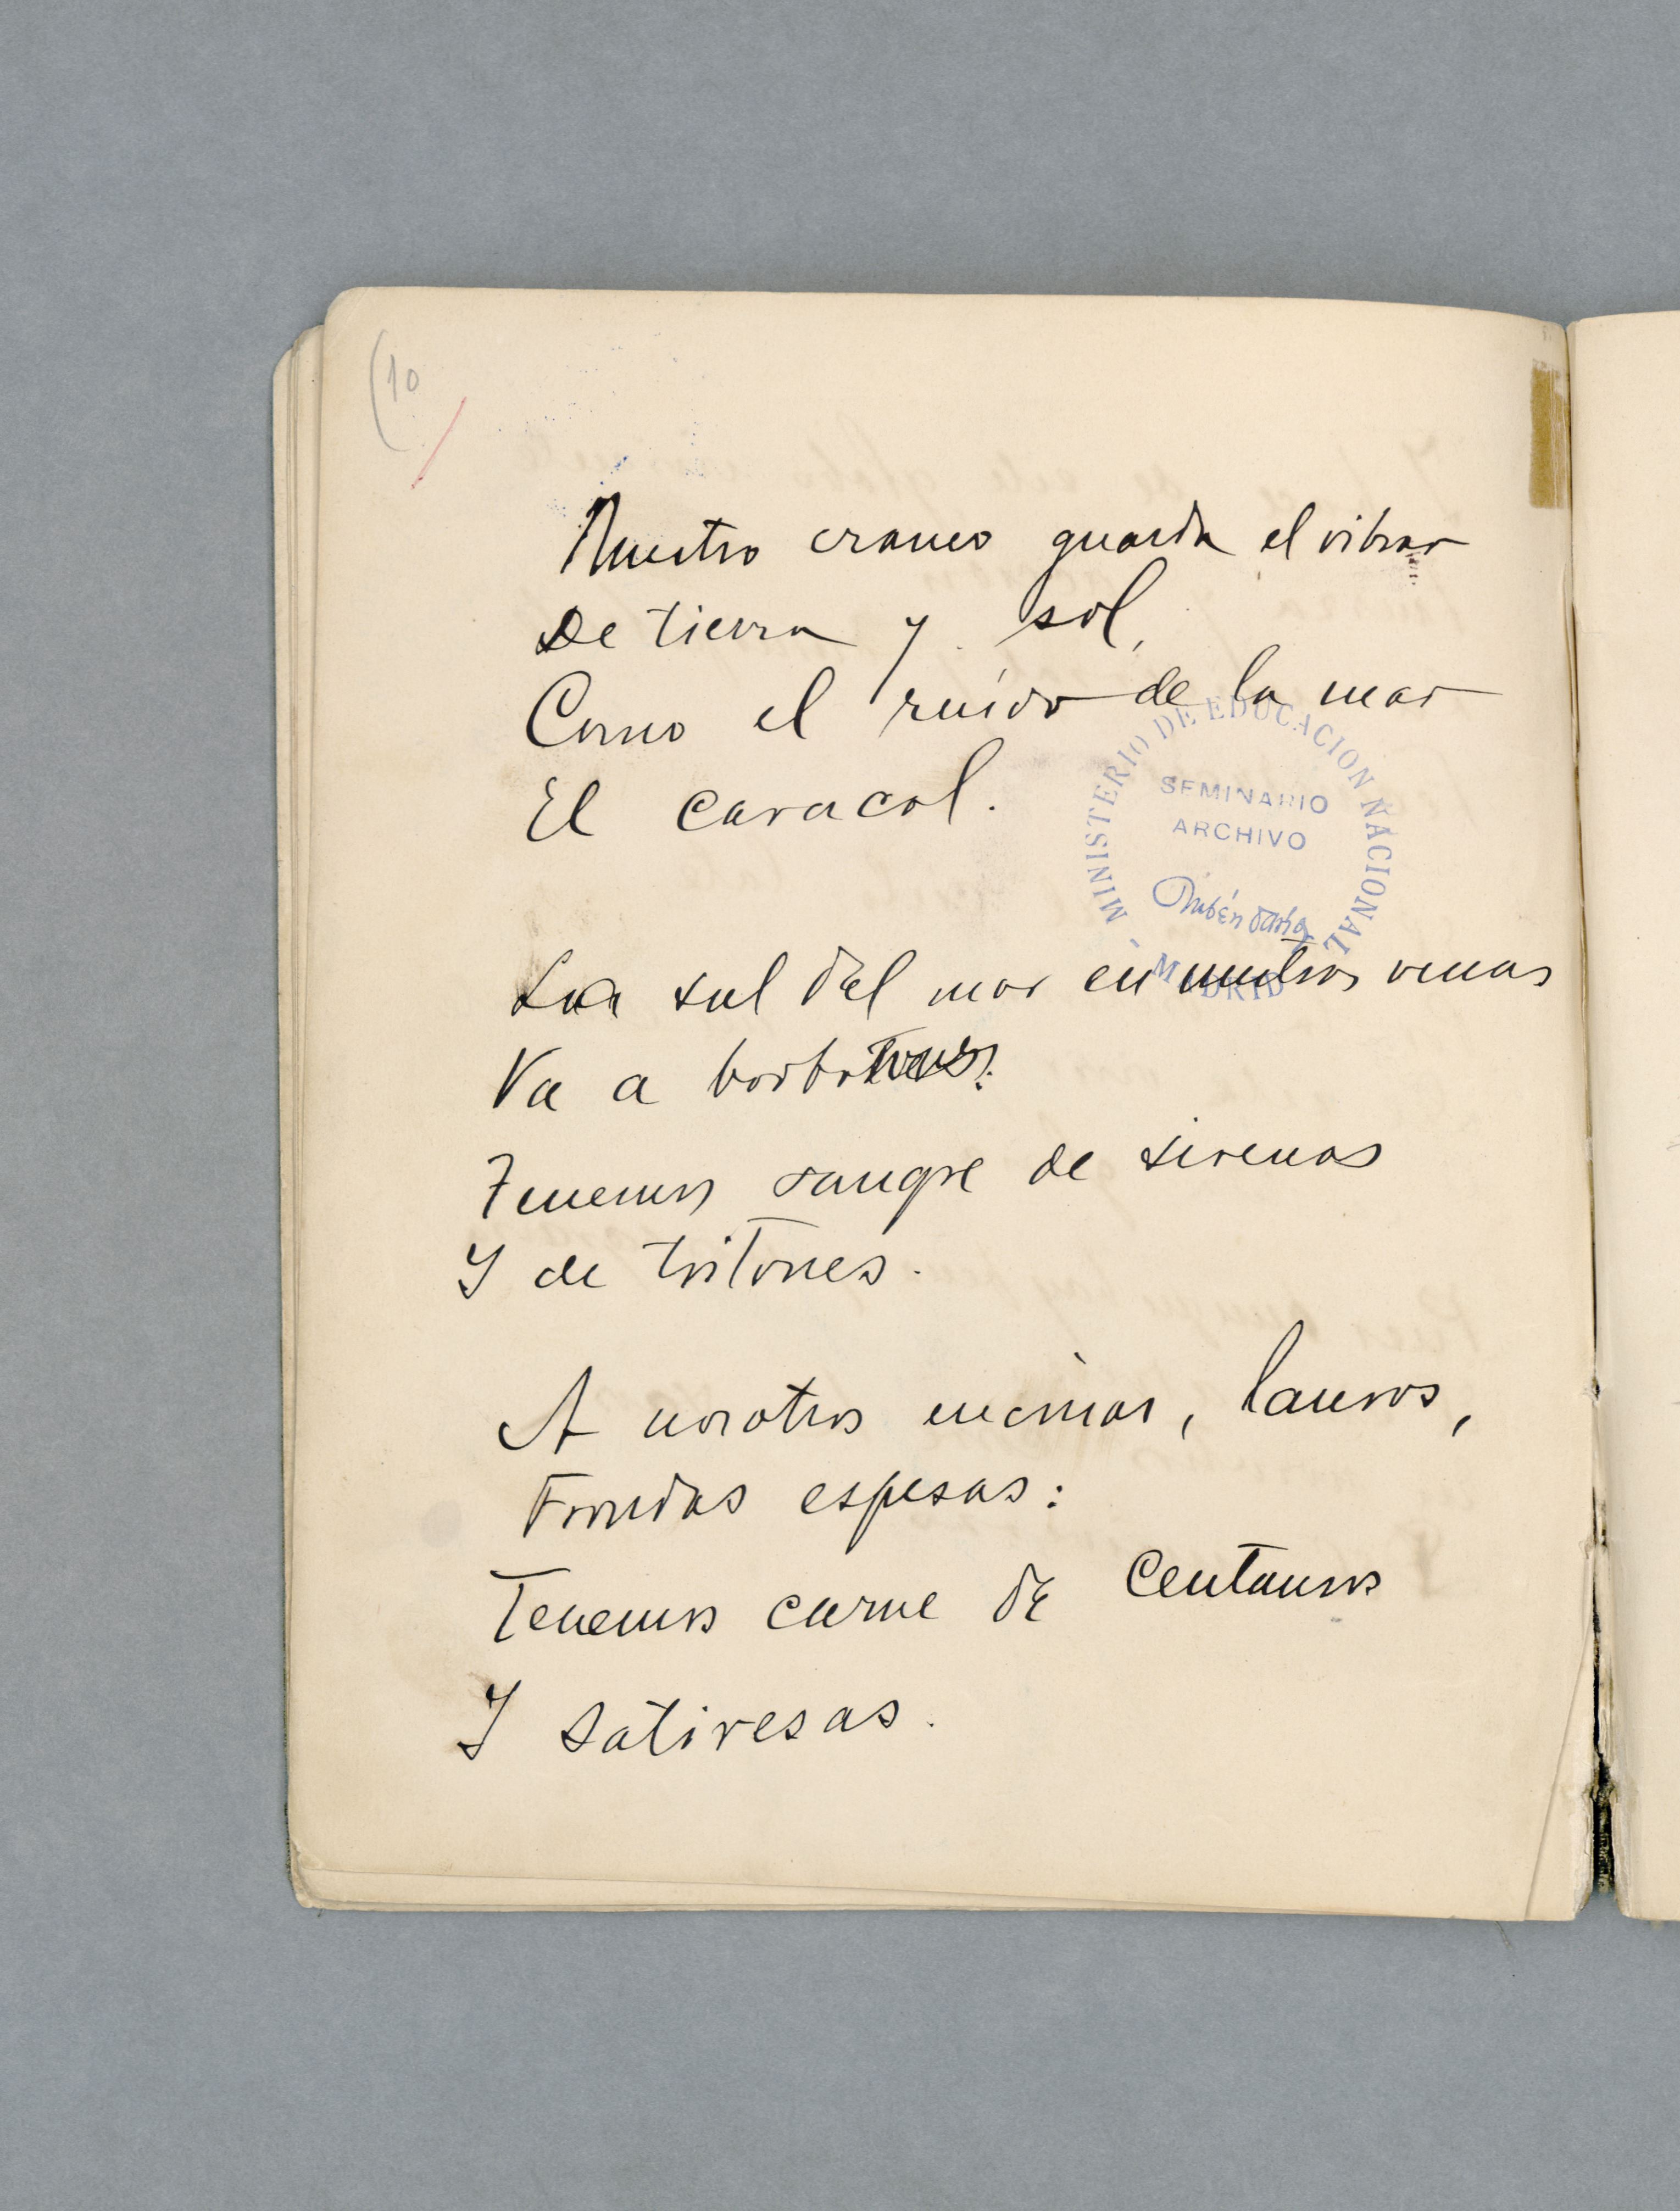 (10
Nuestro craneo guarda el vibrar
De tierra y sol,
Como el ruido de la mar
El caracol.
MINISTERIO DE EDUCACION NACIONAL - MADRID
SEMINARIO
ARCHIVO
Rubén Darío
La sal del mar en nuestras venas
Va a borbotones:
Tenemos sangre de sirenas
Y de tritones.
A nosotros encinas, lauros,
Frondas espesas:
Tenemos carne de Centauros
Y satiresas.